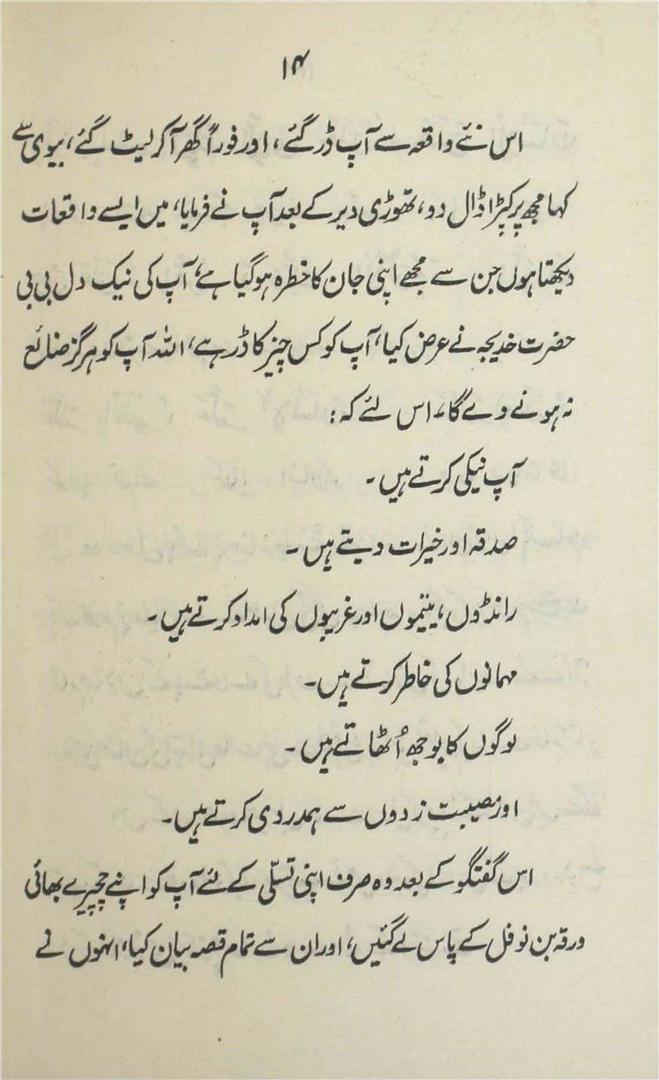 ۱۴
اس نئے واقعہ سے آپ ڈر گئے، اور فوراً گھر آ کر لیٹ گئے، بیوی سے
کہا مجھ پر کپڑا ڈال دو، تھوڑی دیر کے بعد آپ نے فرمایا، میں ایسے واقعات
دیکھتا ہوں جن سے مجھے اپنی جان کا خطرہ ہو گیا ہے، آپ کی نیک دل بی بی
حضرت خدیجہ نے عرض کیا، آپ کو کس چیز کا ڈر ہے، اللہ آپ کو ہرگز ضائع
نہ ہونے دے گا، اس لئے کہ:
آپ نیکی کرتے ہیں۔
صدقہ اور خیرات دیتے ہیں۔
رانڈوں، یتیموں اور غریبوں کی امداد کرتے ہیں۔
مہمانوں کی خاطر کرتے ہیں۔
لوگوں کا بوجھ اُٹھاتے ہیں۔
اور مصیبت زدوں سے ہمدردی کرتے ہیں۔
اس گفتگو کے بعد وہ صرف اپنی تسلّی کے لئے آپ کو اپنے چچیرے بھائی
ورقہ بن نوفل کے پاس لے گئیں، اور ان سے تمام قصہ بیان کیا، انہوں نے